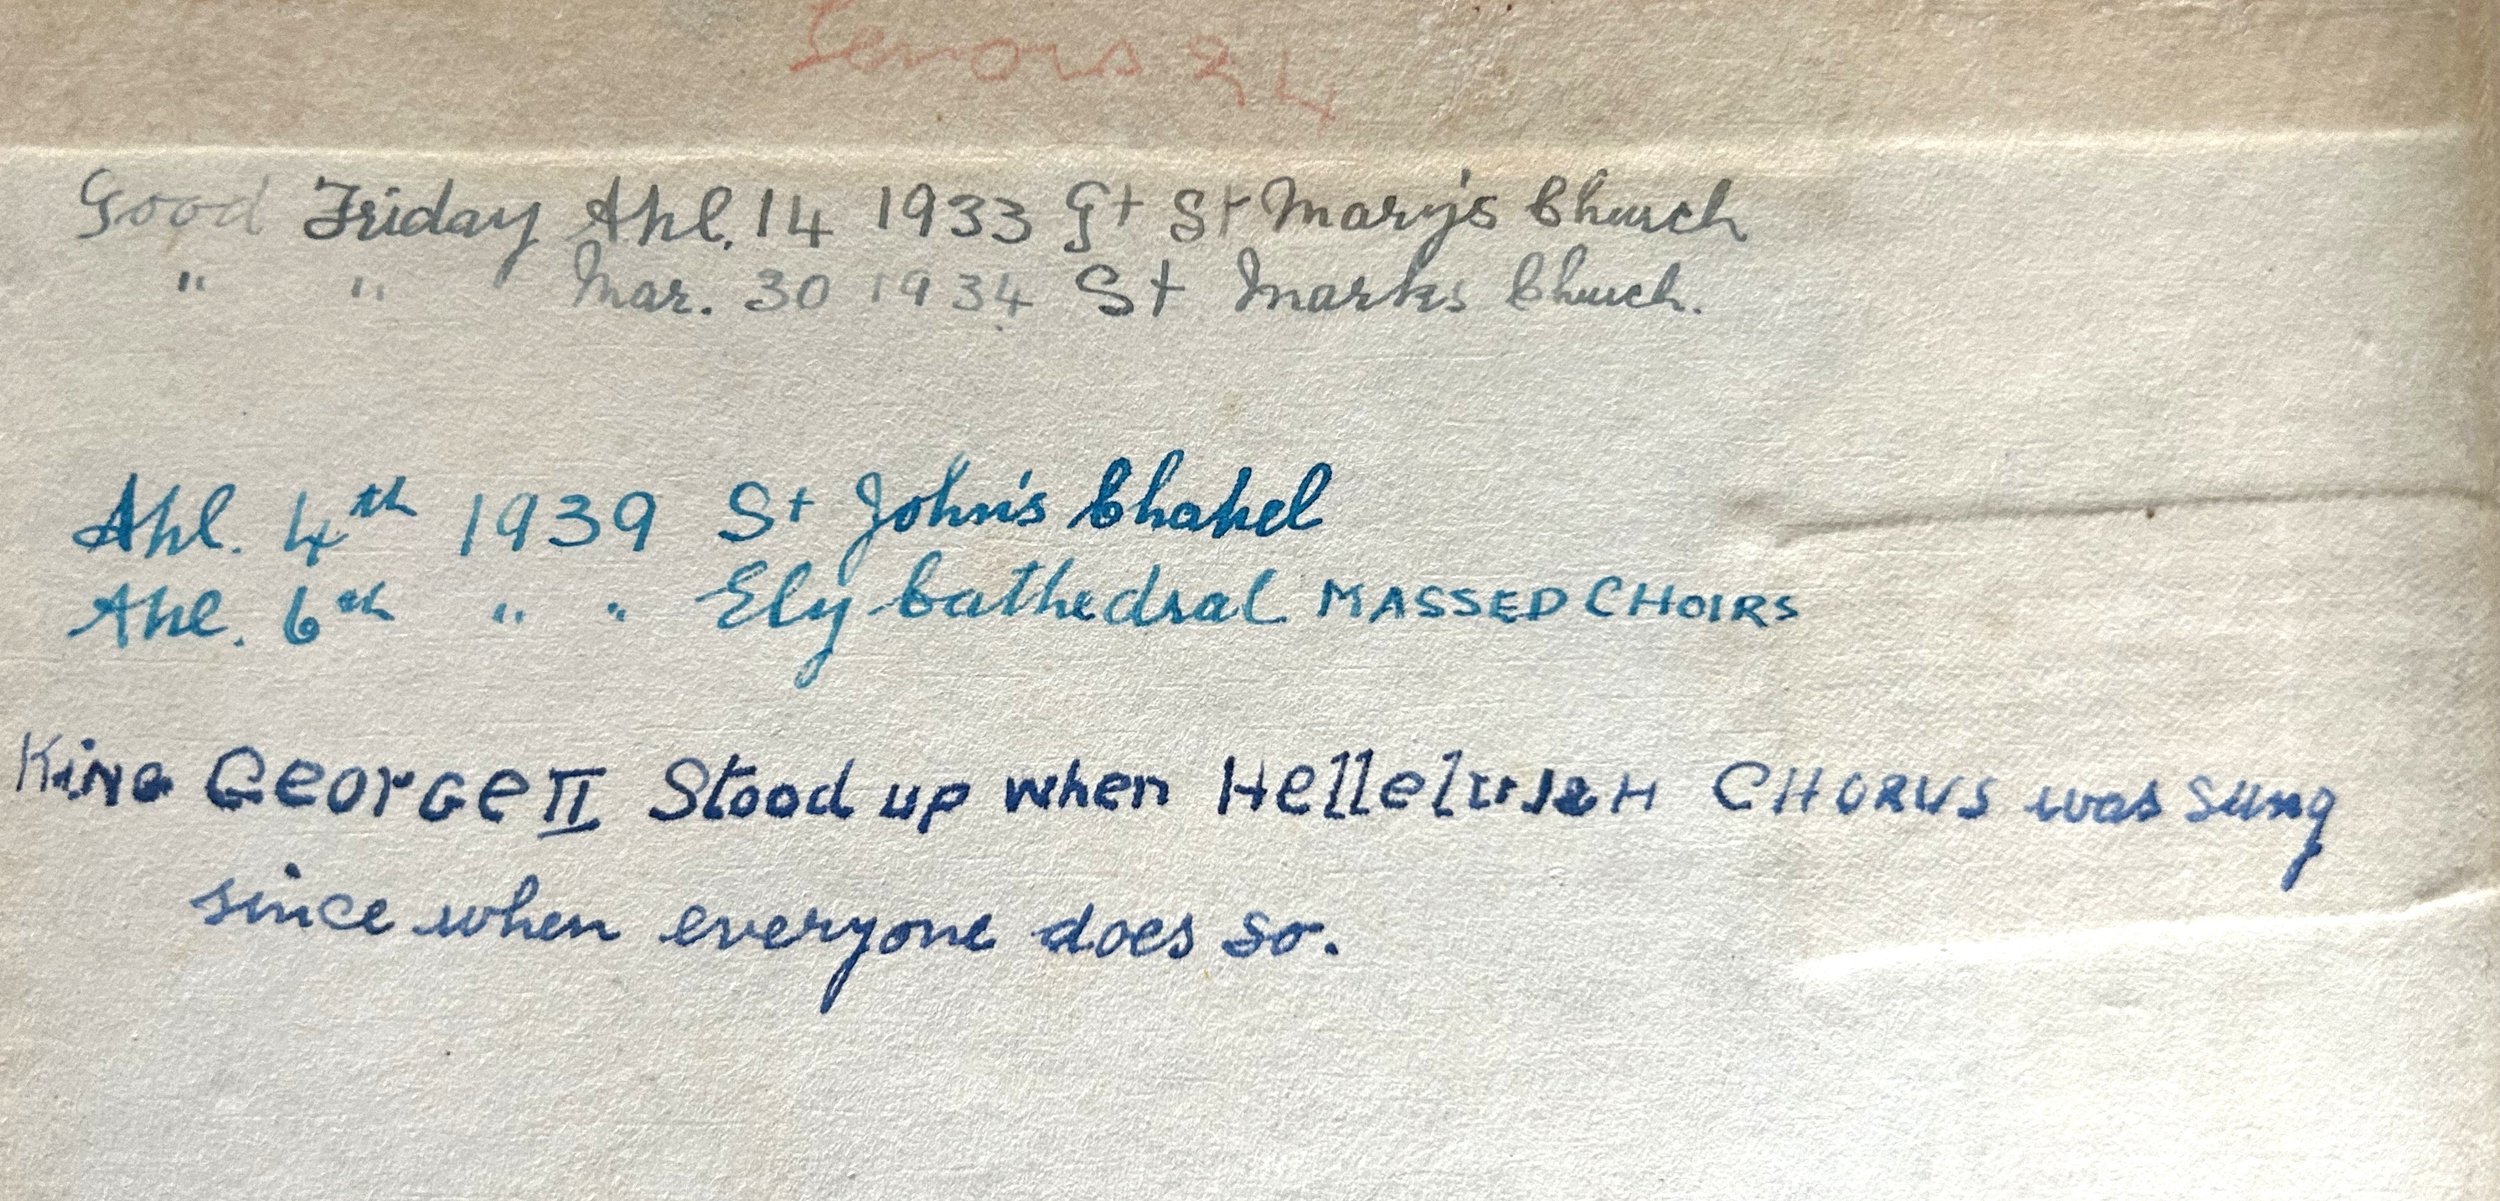 Good Friday Apl. 14 1933 Gt St Mary's Church
" " Mar. 30 1934 St Marks Church.
Apl. 4th 1939 St John's Chapel
Apl. 6th " " Ely Cathedral MASSED CHOIRS
KiNG GEORGE II Stood up when HellelujaH CHORUS was sung
since when everyone does so.